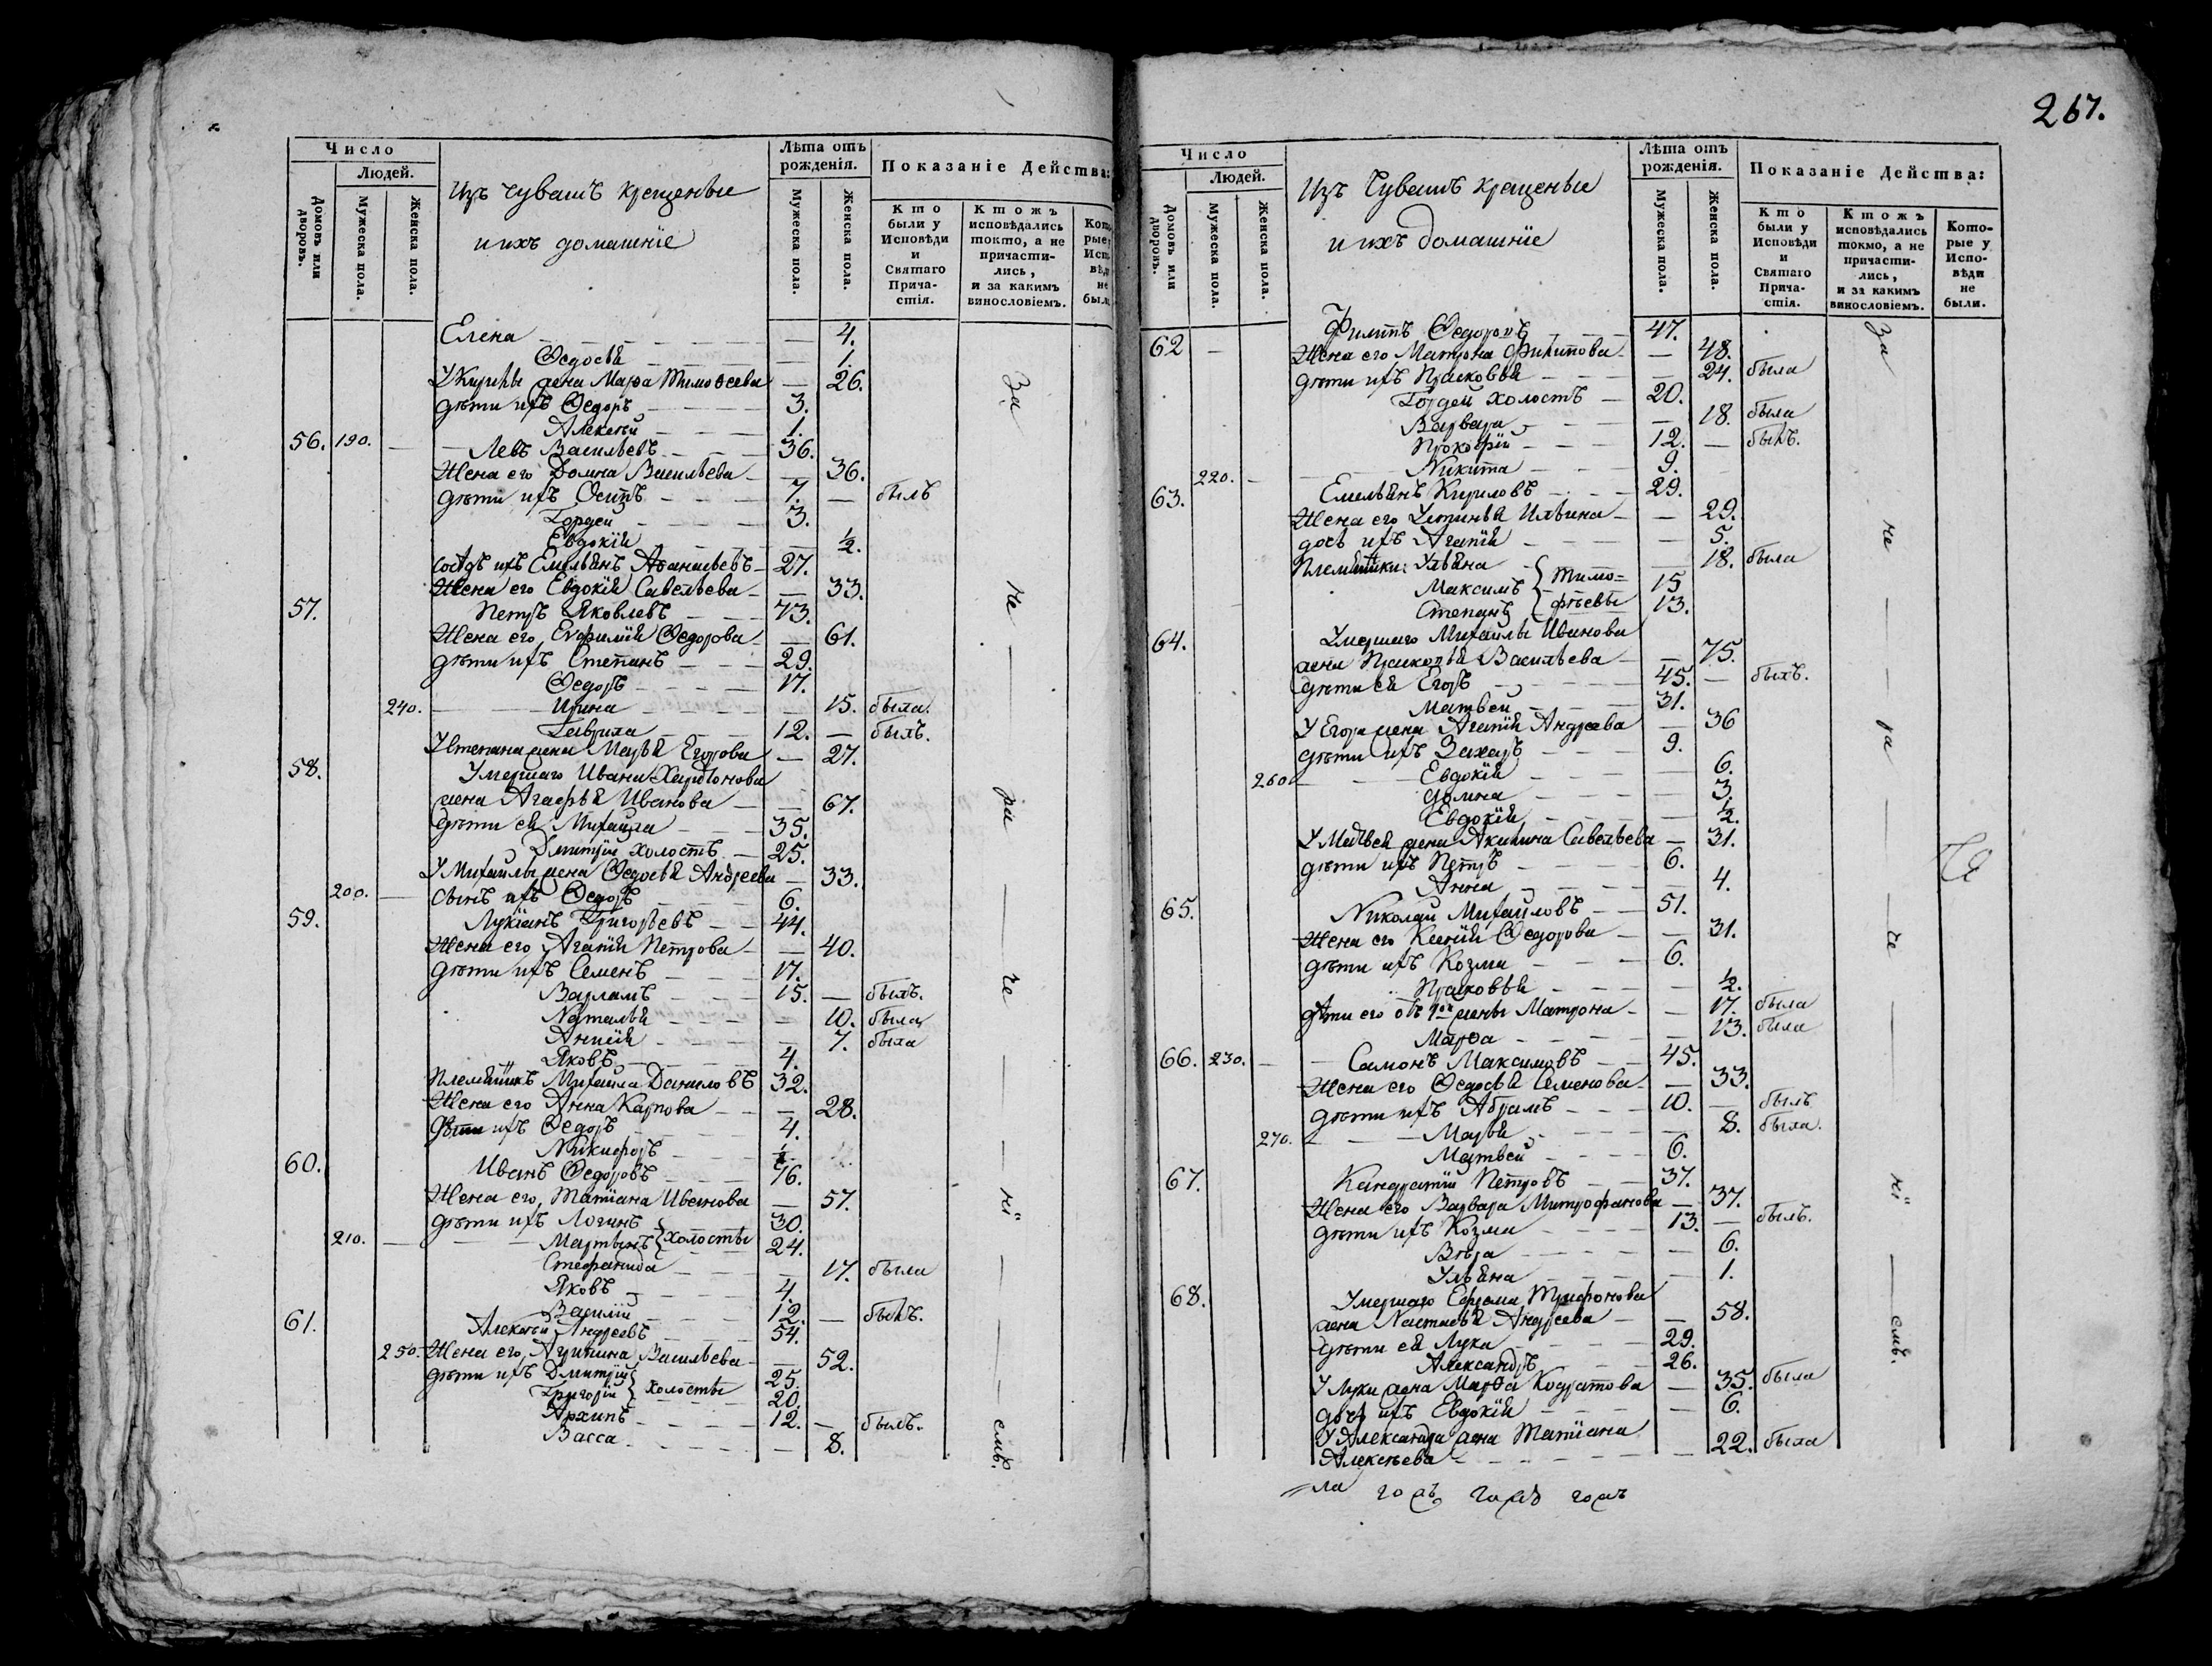 267.
Число
Людей.
Домовъ или дворовъ.
Мужеска пола.
Женска пола.
Изъ чувашъ крещеные
и ихъ домашніе
Лѣта отъ рожденія.
Мужеска пола.
Женска пола.
Показаніе Действа:
Кто были у Исповѣди и Святаго Прича-стія.
Ктожъ исповѣдались токмо, а не причасти-лись, и за какимъ винословіемъ.
Елена — 4.
Ѳедосья — 1.
У Кирилы жена Марѳа Тимоѳеева — 26.
дѣти ихъ Ѳедоръ 3.
Алексѣй 1.
56. 190. — Левъ Васильевъ 36.
Жена его Домна Васильева — 36.
дѣти ихъ Осипъ 7. — былъ
Гордеи 3.
Евдокія — ½.
сосѣдъ ихъ Емельянъ Аѳанасьевъ 27.
Жена его Евдокія Савельева — 33.
57. Петръ Яковлевъ 73.
Жена его Евфимія Ѳедорова — 61.
дѣти ихъ Степанъ 29.
Ѳедоръ 17.
240. Ирина — 15. была.
Гаврила 12. — былъ.
У Степана жена Марья Егорова — 27.
58. Умершаго Ивана Харитонова
жена Агафья Иванова — 67.
дѣти ея Михайла 35.
Дмитрій холостъ 25.
У Михайлы жена Ѳедосья Андреева — 33.
200. — сынъ ихъ Ѳедоръ 6.
59. Лукіянъ Григорьевъ 44.
Жена его Агапія Петрова — 40.
дѣти ихъ Семенъ 17.
Варламъ 15. — былъ.
Наталья — 10. была
— 7. была
Яковъ 4.
Племянникъ Михайла Даниловъ 32.
Жена его Анна Карпова — 28.
Дѣти ихъ Ѳедоръ 4.
Никифоръ ½.
60. Иванъ Ѳедоровъ 76.
Жена его, Татіана Иванова — 57.
дѣти ихъ Логинъ 30.
210. — Мартынъ } холосты 24.
Стефанида — 17. была
Яковъ 4.
Василій 12. — былъ.
61. Алексѣй Андреевъ 54.
250. Жена его, Акулина Васильева — 52.
дѣти ихъ Дмитрій 25.
Григорій } холосты 20.
Архипъ 12. — былъ.
Васса — 8.
За не ра че ні емъ.
Число
Людей.
Домовъ или дворовъ.
Мужеска пола.
Женска пола.
Изъ Чувашъ крещеные
и ихъ домашніе
Лѣта отъ рожденія.
Мужеска пола.
Женска пола.
Показаніе Действа:
Кто были у Исповѣди и Святаго Прича-стія.
Ктожъ исповѣдались токмо, а не причасти-лись, и за какимъ винословіемъ.
Кото-рые у Испо-вѣди не были.
62 — Филипъ Ѳедоровъ 47.
Жена его Матрона Филипова — 48.
дѣти ихъ Прасковья — 24. была
Гордей холостъ 20.
Варвара — 18. была
Прокофій 12. — былъ.
220. — Никита 9.
63. Емельянъ Кириловъ 29.
Жена его Устинья Ильина — 29.
дочь ихъ Агапія — 5.
Племянники: Ульяна — 18. была
Максимъ { Тимо= 15
Степанъ { фѣевы 13.
64. Умершаго Михайлы Иванова
жена Прасковья Васильева — 75.
дѣти ея Егоръ 45. — былъ.
Матвеи 31.
У Егора жена Агапія Андреева — 36
дѣти ихъ Захаръ 9.
260 Евдокія — 6.
Домна — 3.
Евдокія — ½.
У Матвея жена Акилина Савельева — 31.
дѣти ихъ Петръ 6.
Анна — 4.
65. Николаи Михайловъ 51.
Жена его Ксенія Ѳедорова — 31.
дѣти ихъ Козма 6.
Прасковья — ½.
дѣти его отъ 1ой жены Матрона — 17. была
Марѳа — 13. была
66. 230. — Самонъ Максимовъ 45.
Жена его Ѳедосья Семенова — 33.
дѣти ихъ Абрамъ 10. — былъ
270. — Марья — 8. была.
Матвеи 6.
67. Кандратіи Петровъ 37.
Жена его Варвара Митрофанова — 37.
дѣти ихъ Козма 13. — былъ.
Вѣра — 6.
Ульяна — 1.
68. Умершаго Ефрема Трифонова
жена Настасья Андреева — 58.
дѣти ея Лука 29.
Александръ 26.
У Луки жена Марѳа Кодратова — 35. была
дочь ихъ Евдокія — 6.
У Александра жена Татіана
Алексѣева — 22. была
За не ра че ні емъ.